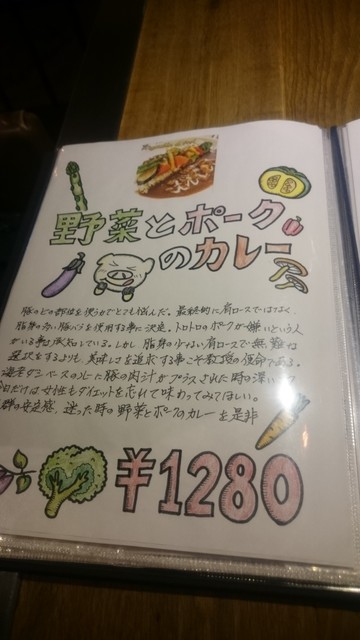 野菜とポーク
のカレー
豚のどの部位を使うかでとても悩んだ。最終的に肩ロースではなく、
脂身の多い豚バラを使用する事に決定。トロトロのポークが嫌いという人
がいる事も承知している。しかし脂身の少ない肩ロースで無難な
選択をするよりも、美味しさを追求する事こそ 使命である。
豚の肉汁がプラスされた時の深い
日だけは女性もダイエットを忘れて味わってみてほしい。
群の安定感、迷った時の野菜とポークのカレーを是非
¥1280